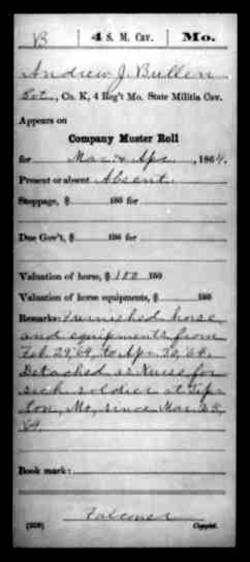 B | 4 S. M. Cav. | Mo.
Andrew J. Bullen
Pvt., Co. K, 4 Reg't Mo. State Militia Cav.
Appears on
Company Muster Roll
for Mar & Apr, 1864.
Present or absent Absent.
Stoppage, $ 186 for
Due Gov't, $ 186 for
Valuation of horse, $ 100 186
Valuation of horse equipments, $ 186
Remarks: Furnished horse
and equipments from
Feb. 29,'64, to Apr. 30,'64.
Detached as Nurse for
sick soldier at Tip-
ton, Mo, since Mar 25,
'64.
Book mark:
Falconer
(358) Copyist.